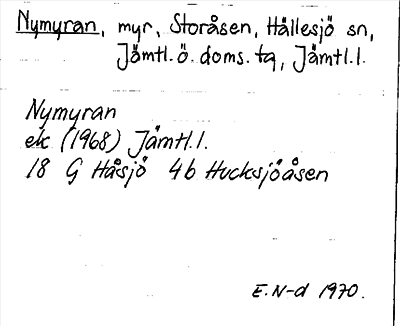 Nymyran, myr, Storåsen, Hällesjö sn,
Jämtl.ö.doms.tg, Jämtl.l.
Nymyran
ek (1968) Jämtl.l.
18 G Håsjö 4b Hucksjöåsen
E.N-d 1970.